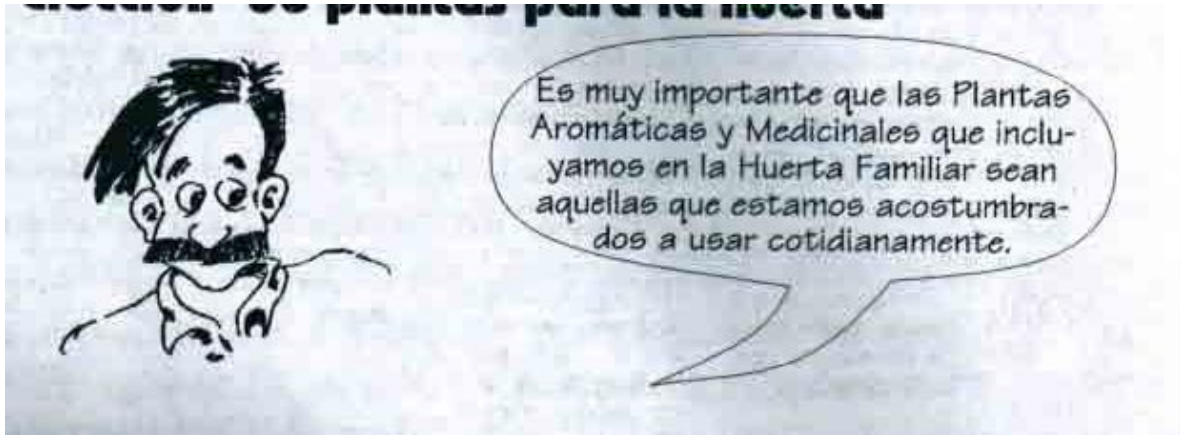 de plantas para la huerta
Es muy importante que las Plantas
Aromáticas y Medicinales que inclu-
yamos en la Huerta Familiar sean
aquellas que estamos acostumbra-
dos a usar cotidianamente.